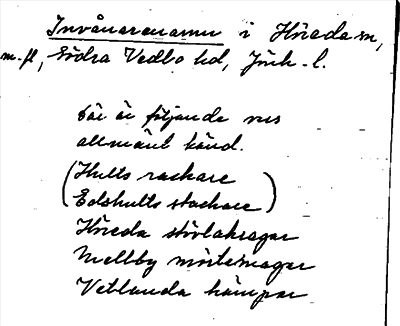 Invånarenamn i Höreda m,
m.fl, Södra Vedbo hd, Jönk. l.
Här är följande vers
allmänt känd.
(Hults rackare
Edshults stackare)
Höreda stövlakragar
Mellby mörtamagar
Vetlanda kämpar